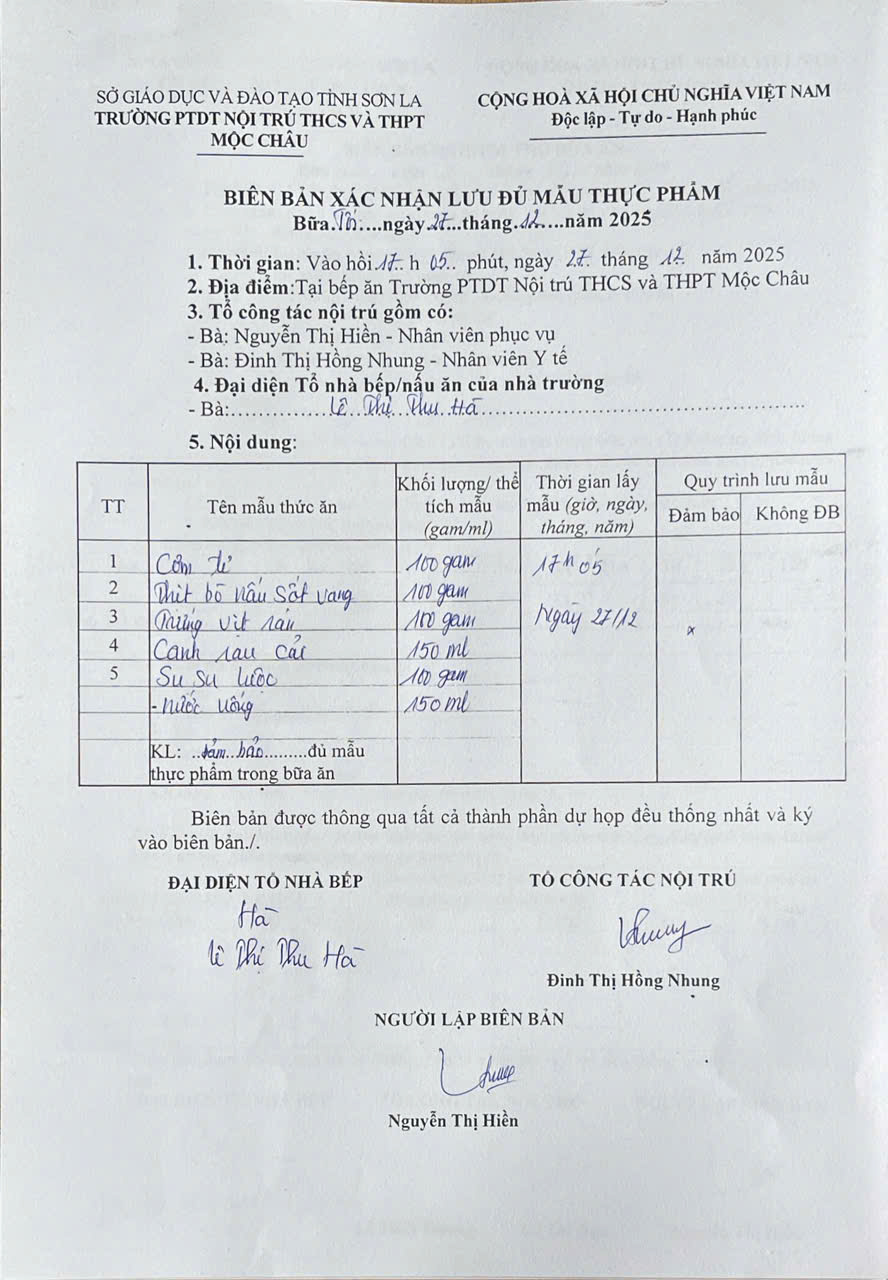 SỞ GIÁO DỤC VÀ ĐÀO TẠO TỈNH SƠN LA
TRƯỜNG PTDT NỘI TRÚ THCS VÀ THPT
MỘC CHÂU
CỘNG HOÀ XÃ HỘI CHỦ NGHĨA VIỆT NAM
Độc lập - Tự do - Hạnh phúc
BIÊN BẢN XÁC NHẬN LƯU ĐỦ MẪU THỰC PHẨM
Bữa.Tối....ngày.27...tháng.12....năm 2025
1. Thời gian: Vào hồi.17.. h 05.. phút, ngày 27. tháng 12 năm 2025
2. Địa điểm:Tại bếp ăn Trường PTDT Nội trú THCS và THPT Mộc Châu
3. Tổ công tác nội trú gồm có:
- Bà: Nguyễn Thị Hiền - Nhân viên phục vụ
- Bà: Đinh Thị Hồng Nhung - Nhân viên Y tế
4. Đại diện Tổ nhà bếp/nấu ăn của nhà trường
- Bà:..............Lê Thị Thu Hà..............
5. Nội dung:
TT Tên mẫu thức ăn Khối lượng/ thể tích mẫu (gam/ml) Thời gian lấy mẫu (giờ, ngày, tháng, năm) Quy trình lưu mẫu
Đảm bảo Không ĐB
1 Cơm tẻ 100 gam 17h 05
2 Thịt bò nấu sốt vang 100 gam
3 Trứng vịt rán 100 gam Ngày 27/12 x
4 Canh rau cải 150 ml
5 Su su luộc 100 gam
- Nước uống 150 ml
KL: ..đảm bảo.........đủ mẫu
thực phẩm trong bữa ăn
Biên bản được thông qua tất cả thành phần dự họp đều thống nhất và ký
vào biên bản./.
ĐẠI DIỆN TỔ NHÀ BẾP
Hà
Lê Thị Thu Hà
TỔ CÔNG TÁC NỘI TRÚ
Nhung
Đinh Thị Hồng Nhung
NGƯỜI LẬP BIÊN BẢN
Nguyễn Thị Hiền